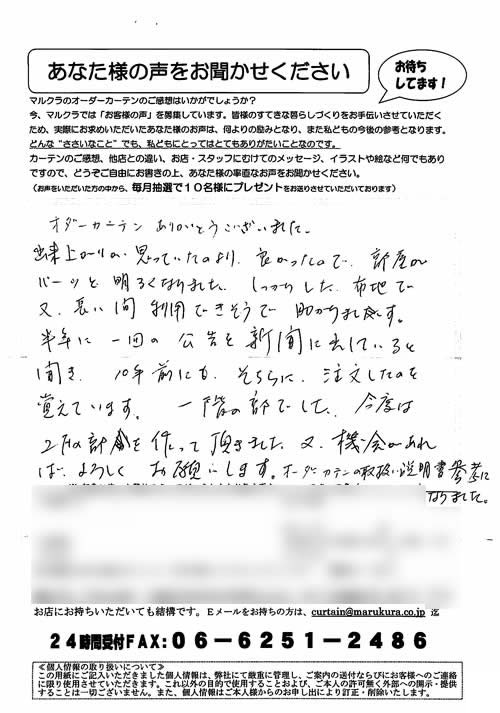 あなた様の声をお聞かせください
お待ち
してます!
マルクラのオーダーカーテンのご感想はいかがでしょうか?
今、マルクラでは「お客様の声」を募集しています。皆様のすてきな暮らしづくりをお手伝いさせていただく
ため、実際にお求めいただいたあなた様のお声は、何よりの励みとなり、また私どもの今後の参考となります。
どんな“ささいなこと”でも、私どもにとってはとてもありがたいことなのです。
カーテンのご感想、他店との違い、お店・スタッフにむけてのメッセージ、イラストや絵など何でもあり
ですので、どうぞご自由にお書きの上、あなた様の率直なお声をお聞かせください。
(お声をいただいた方の中から、毎月抽選で10名様にプレゼントをお送りさせていただいております)
オダーカーテン ありがとうございました。
出来上がりが 思っていたのより、良かったので、部屋が
パーッと 明るくなりました。しっかりした 布地で
又、長い間 利用できそうで 助かります。
半年に 一回の 公告を 新聞に出していると
聞き、10年前にも、そちらに、注文したのを
覚えています。 一階の部でした。今度は
2階の部を作って頂きました。又、機会があれ
ば、よろしく お願いします。オーダカーテンの取扱い説明書参考に
なりました。
お店にお持ちいただいても結構です。Eメールをお持ちの方は、curtain@marukura.co.jp 迄
24時間受付FAX:06-6251-2486
≪個人情報の取り扱いについて≫
この用紙にご記入いただきました個人情報は、弊社にて厳重に管理し、ご案内の送付ならびにお客様へのご連絡
に限り使用させていただきます。これ以外の目的で使用することおよび、ご本人の許可無く外部への開示・提供
することは一切ございません。また、個人情報はご本人様からのお申し出により訂正・削除いたします。